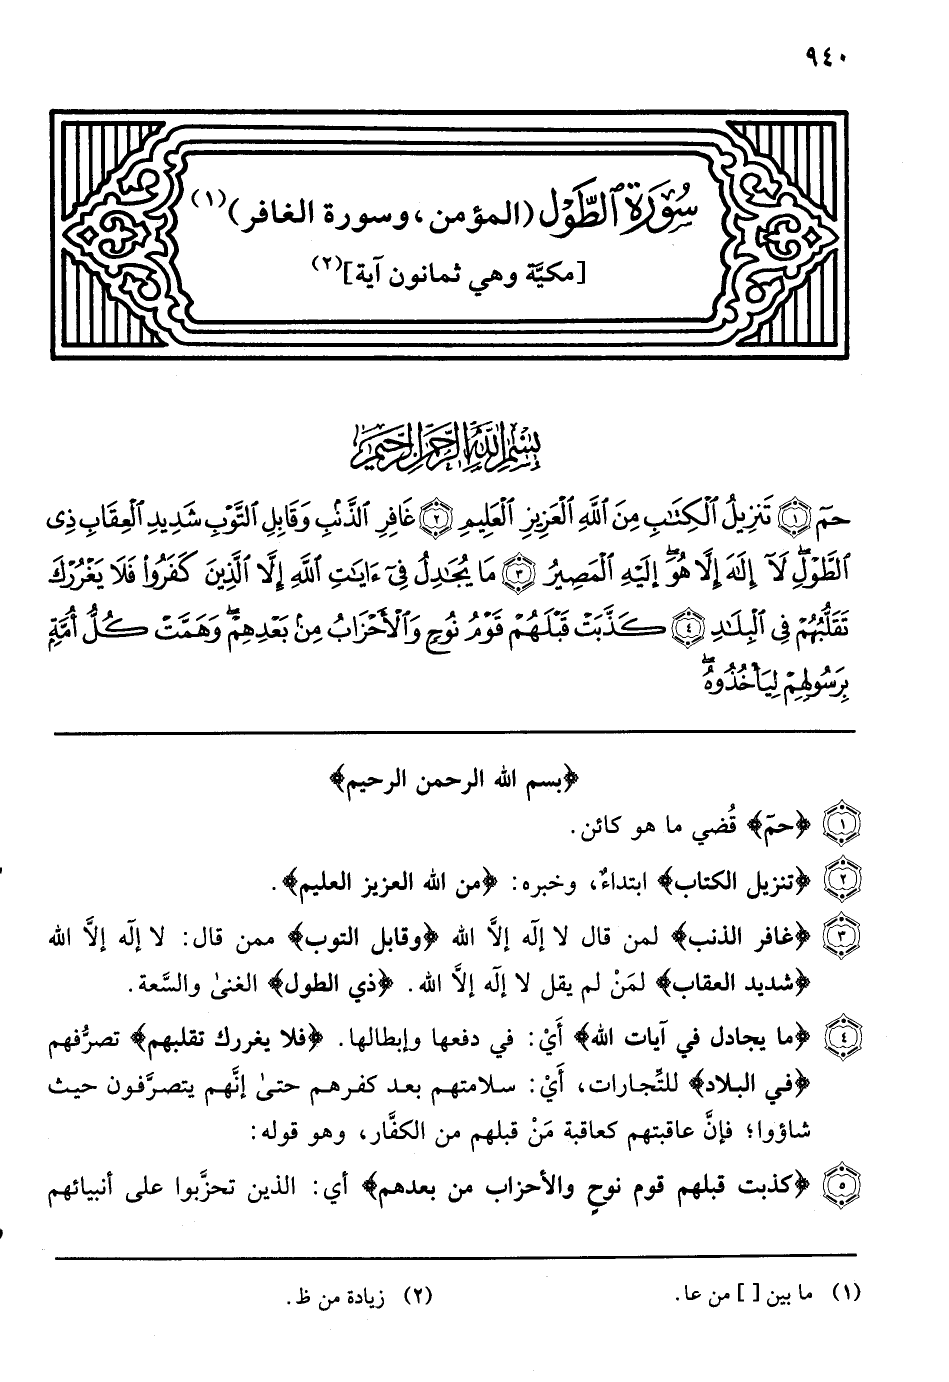 ٩٤٠
سُورَةُ ٱلطَّوْلِ (المؤمن، وسورة الغافر)(١)
[مكيَّة وهي ثمانون آية](٢)
بِسْمِ اللَّهِ الرَّحْمَنِ الرَّحِيمِ
حمٓ ١ تَنزِيلُ ٱلْكِتَٰبِ مِنَ ٱللَّهِ ٱلْعَزِيزِ ٱلْعَلِيمِ ٢ غَافِرِ ٱلذَّنۢبِ وَقَابِلِ ٱلتَّوْبِ شَدِيدِ ٱلْعِقَابِ ذِى
ٱلطَّوْلِۖ لَآ إِلَٰهَ إِلَّا هُوَۖ إِلَيْهِ ٱلْمَصِيرُ ٣ مَا يُجَٰدِلُ فِىٓ ءَايَٰتِ ٱللَّهِ إِلَّا ٱلَّذِينَ كَفَرُوا۟ فَلَا يَغْرُرْكَ
تَقَلُّبُهُمْ فِى ٱلْبِلَٰدِ ٤ كَذَّبَتْ قَبْلَهُمْ قَوْمُ نُوحٍ وَٱلْأَحْزَابُ مِنۢ بَعْدِهِمْۖ وَهَمَّتْ كُلُّ أُمَّةٍۭ
بِرَسُولِهِمْ لِيَأْخُذُوهُۖ
﴿بسم الله الرحمن الرحيم﴾
١ ﴿حمۤ﴾ قُضي ما هو كائن.
٢ ﴿تنزيل الكتاب﴾ ابتداءٌ، وخبره: ﴿من الله العزيز العليم﴾.
٣ ﴿غافر الذنب﴾ لمن قال لا إلٰه إلاَّ الله ﴿وقابل التوب﴾ ممن قال: لا إلٰه إلاَّ الله
﴿شديد العقاب﴾ لمَنْ لم يقل لا إلٰه إلاَّ الله. ﴿ذي الطول﴾ الغنىٰ والسَّعة.
٤ ﴿ما يجادل في آيات الله﴾ أَيْ: في دفعها وإبطالها. ﴿فلا يغررك تقلبهم﴾ تصرُّفهم
﴿في البلاد﴾ للتِّجارات، أَيْ: سلامتهم بعد كفرهم حتىٰ إنَّهم يتصرَّفون حيث
شاؤوا؛ فإنَّ عاقبتهم كعاقبة مَنْ قبلهم من الكفَّار، وهو قوله:
٥ ﴿كذبت قبلهم قوم نوحٍ والأحزاب من بعدهم﴾ أي: الذين تحزَّبوا على أنبيائهم
(١) ما بين [ ] من عا.
(٢) زيادة من ظ.